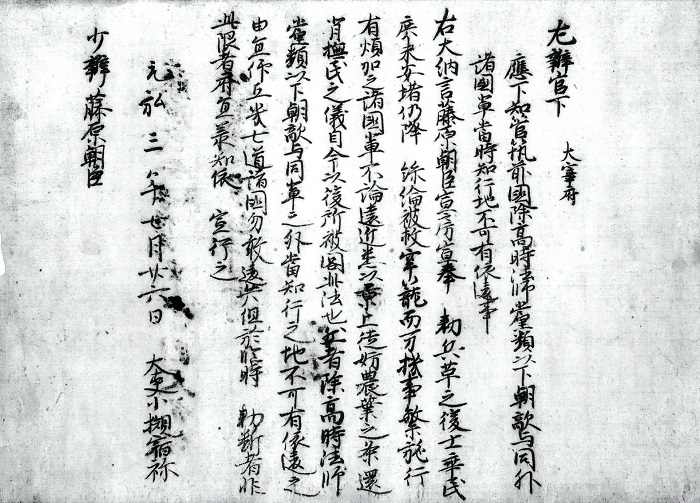 左辨官下　大宰府
應下知管筑前國除高時法師黨類以下朝敵与同外
諸國輩當時知行地不可有依違事
右大納言藤原朝臣宣房宣奉　勅兵革之後士卒民
庶未安堵仍降　綸被救牢籠而万機事繁施行
有煩加之諸國輩不論遠近悉以京上徒妨農業之条還
背撫民之儀自今以後所被閣此法也然者除高時法師
黨類以下朝敵与同輩之外當知行之地不可有依違之
由宣仰五畿七道諸國勿敢違失但於臨時　勅断者非
此限者府宜承知依　宣行之
元弘三年七月廿六日　大史小槻宿祢
少辨藤原朝臣